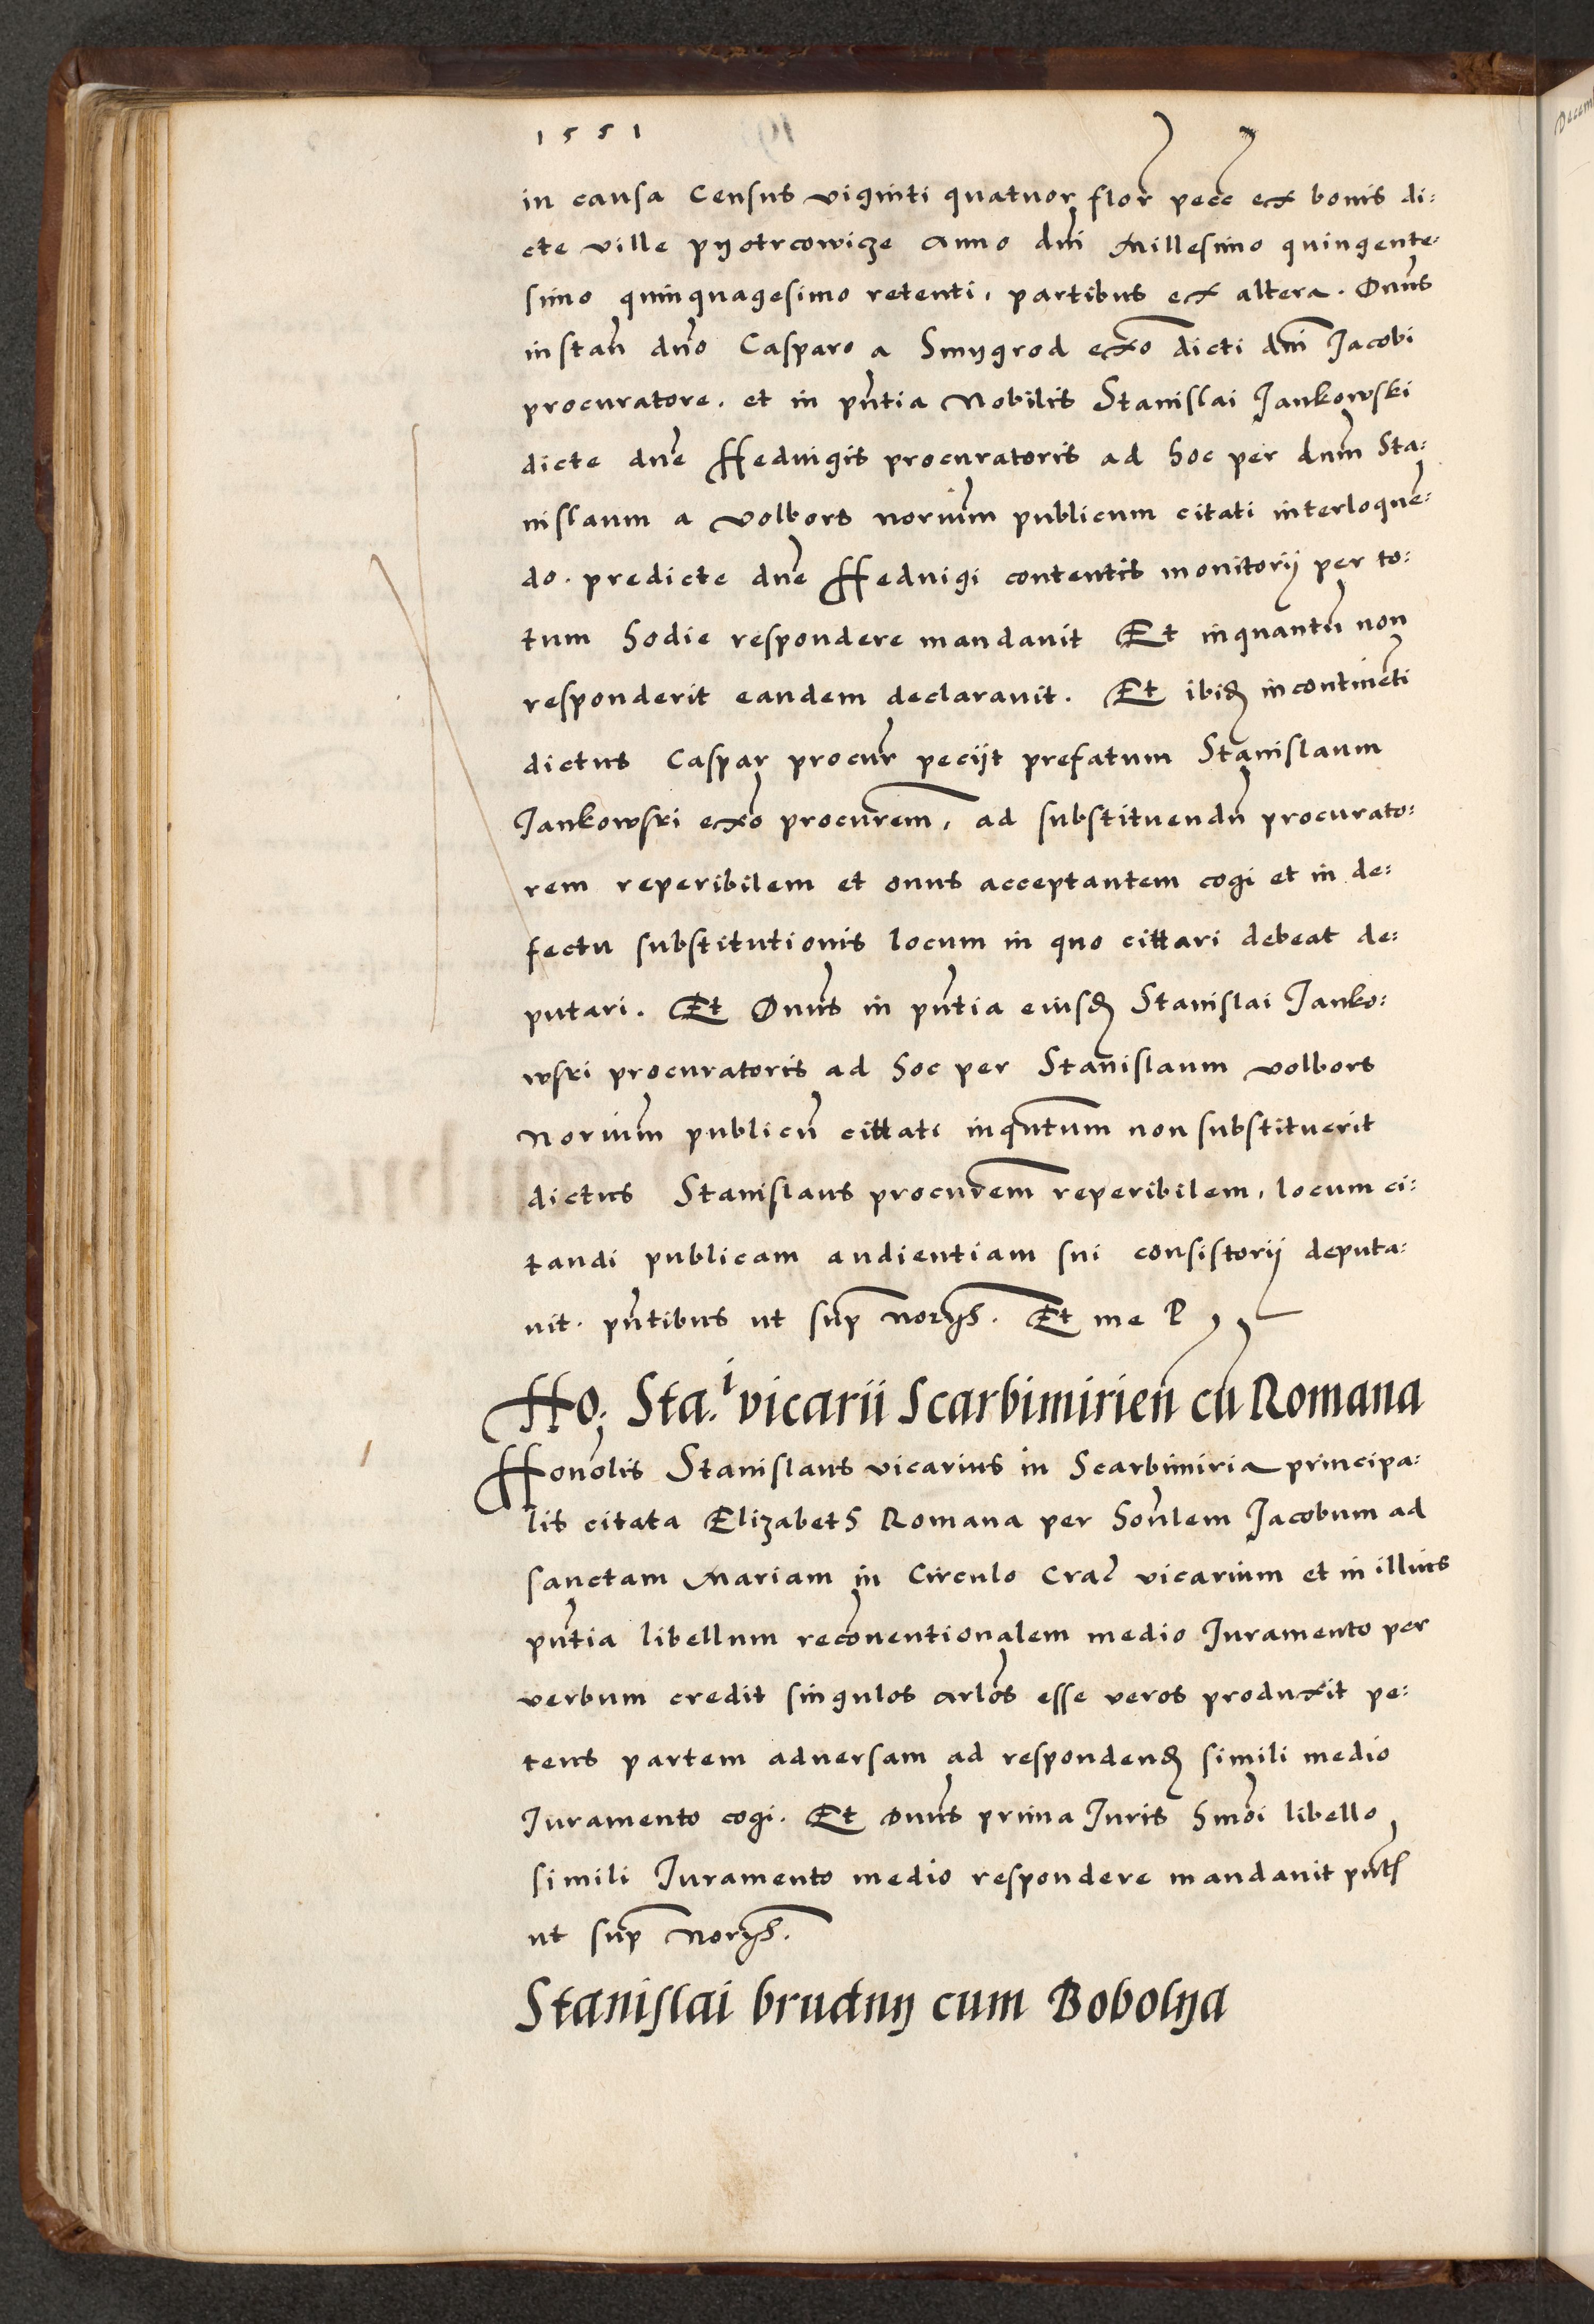 1551
in causa Census viginti quatuor flor̃ pecc̃ ex bonis di:
cte ville pyotrcowicze anno dni̅ Millesimo quingente:
simo quinquagesimo retenti, partibus ex altera. Dnu̅s
instan̅ dn̅o Casparo a Smygrod exo̅ dicti dn̅i Jacobi
procuratore. et in pn̅tia Nobilis Stanislai Jankowski
dicte dn̅e Heduigis procuratoris ad hoc per dnu̅m Sta:
nislaum a volbors noriu̅m publicum citati interloque̅:
do. predicte dn̅e Heduigi contentis monitorij per to:
tum hodie respondere mandauit Et inquantu̅ non
responderit eandem declarauit. Et ibid̅ incontine̅ti
dictus Caspar procur̅ pecijt prefatum Stanislaum
Jankowski exo̅ procure̅m, ad substituendu̅ procurato:
rem reperibilem et onus acceptantem cogi et in de:
fectu substitutionis locum in quo cittari debeat de:
putari. Et Dnu̅s in pn̅tia eiusd̅ Stanislai Janko:
wski procuratoris ad hoc per Stanislaum volbors
Noriu̅m publicu̅ cittati inqu̅ntum non substituerit
dictus Stanislaus procure̅m reperibilem, locum ci:
tandi publicam audientiam sui consistorij deputa:
uit. pn̅tibus ut sup̅ nory̅s. Et me P
Ho; Sta.i vicarii Scarbimirien̅ cu̅ Romana
Hono̅lis Stanislaus vicarius in Scarbimiria principa:
lis citata Elizabeth Romana per hon̅lem Jacobum ad
sanctam Mariam in Circulo Crac̃ vicarium et in illius
pn̅tia libellum reco̅nuentionalem medio Juramento per
verbum credit singulos arlo̅s esse veros produxit pe:
tens partem aduersam ad respondend̅ simili medio
Juramento cogi. Et Dnu̅s prima Juris hmo̅i libello
simili Juramento medio respondere mandauit pn̅t
ut sup̅ nory̅s.
Stanislai brudny cum Bobolya